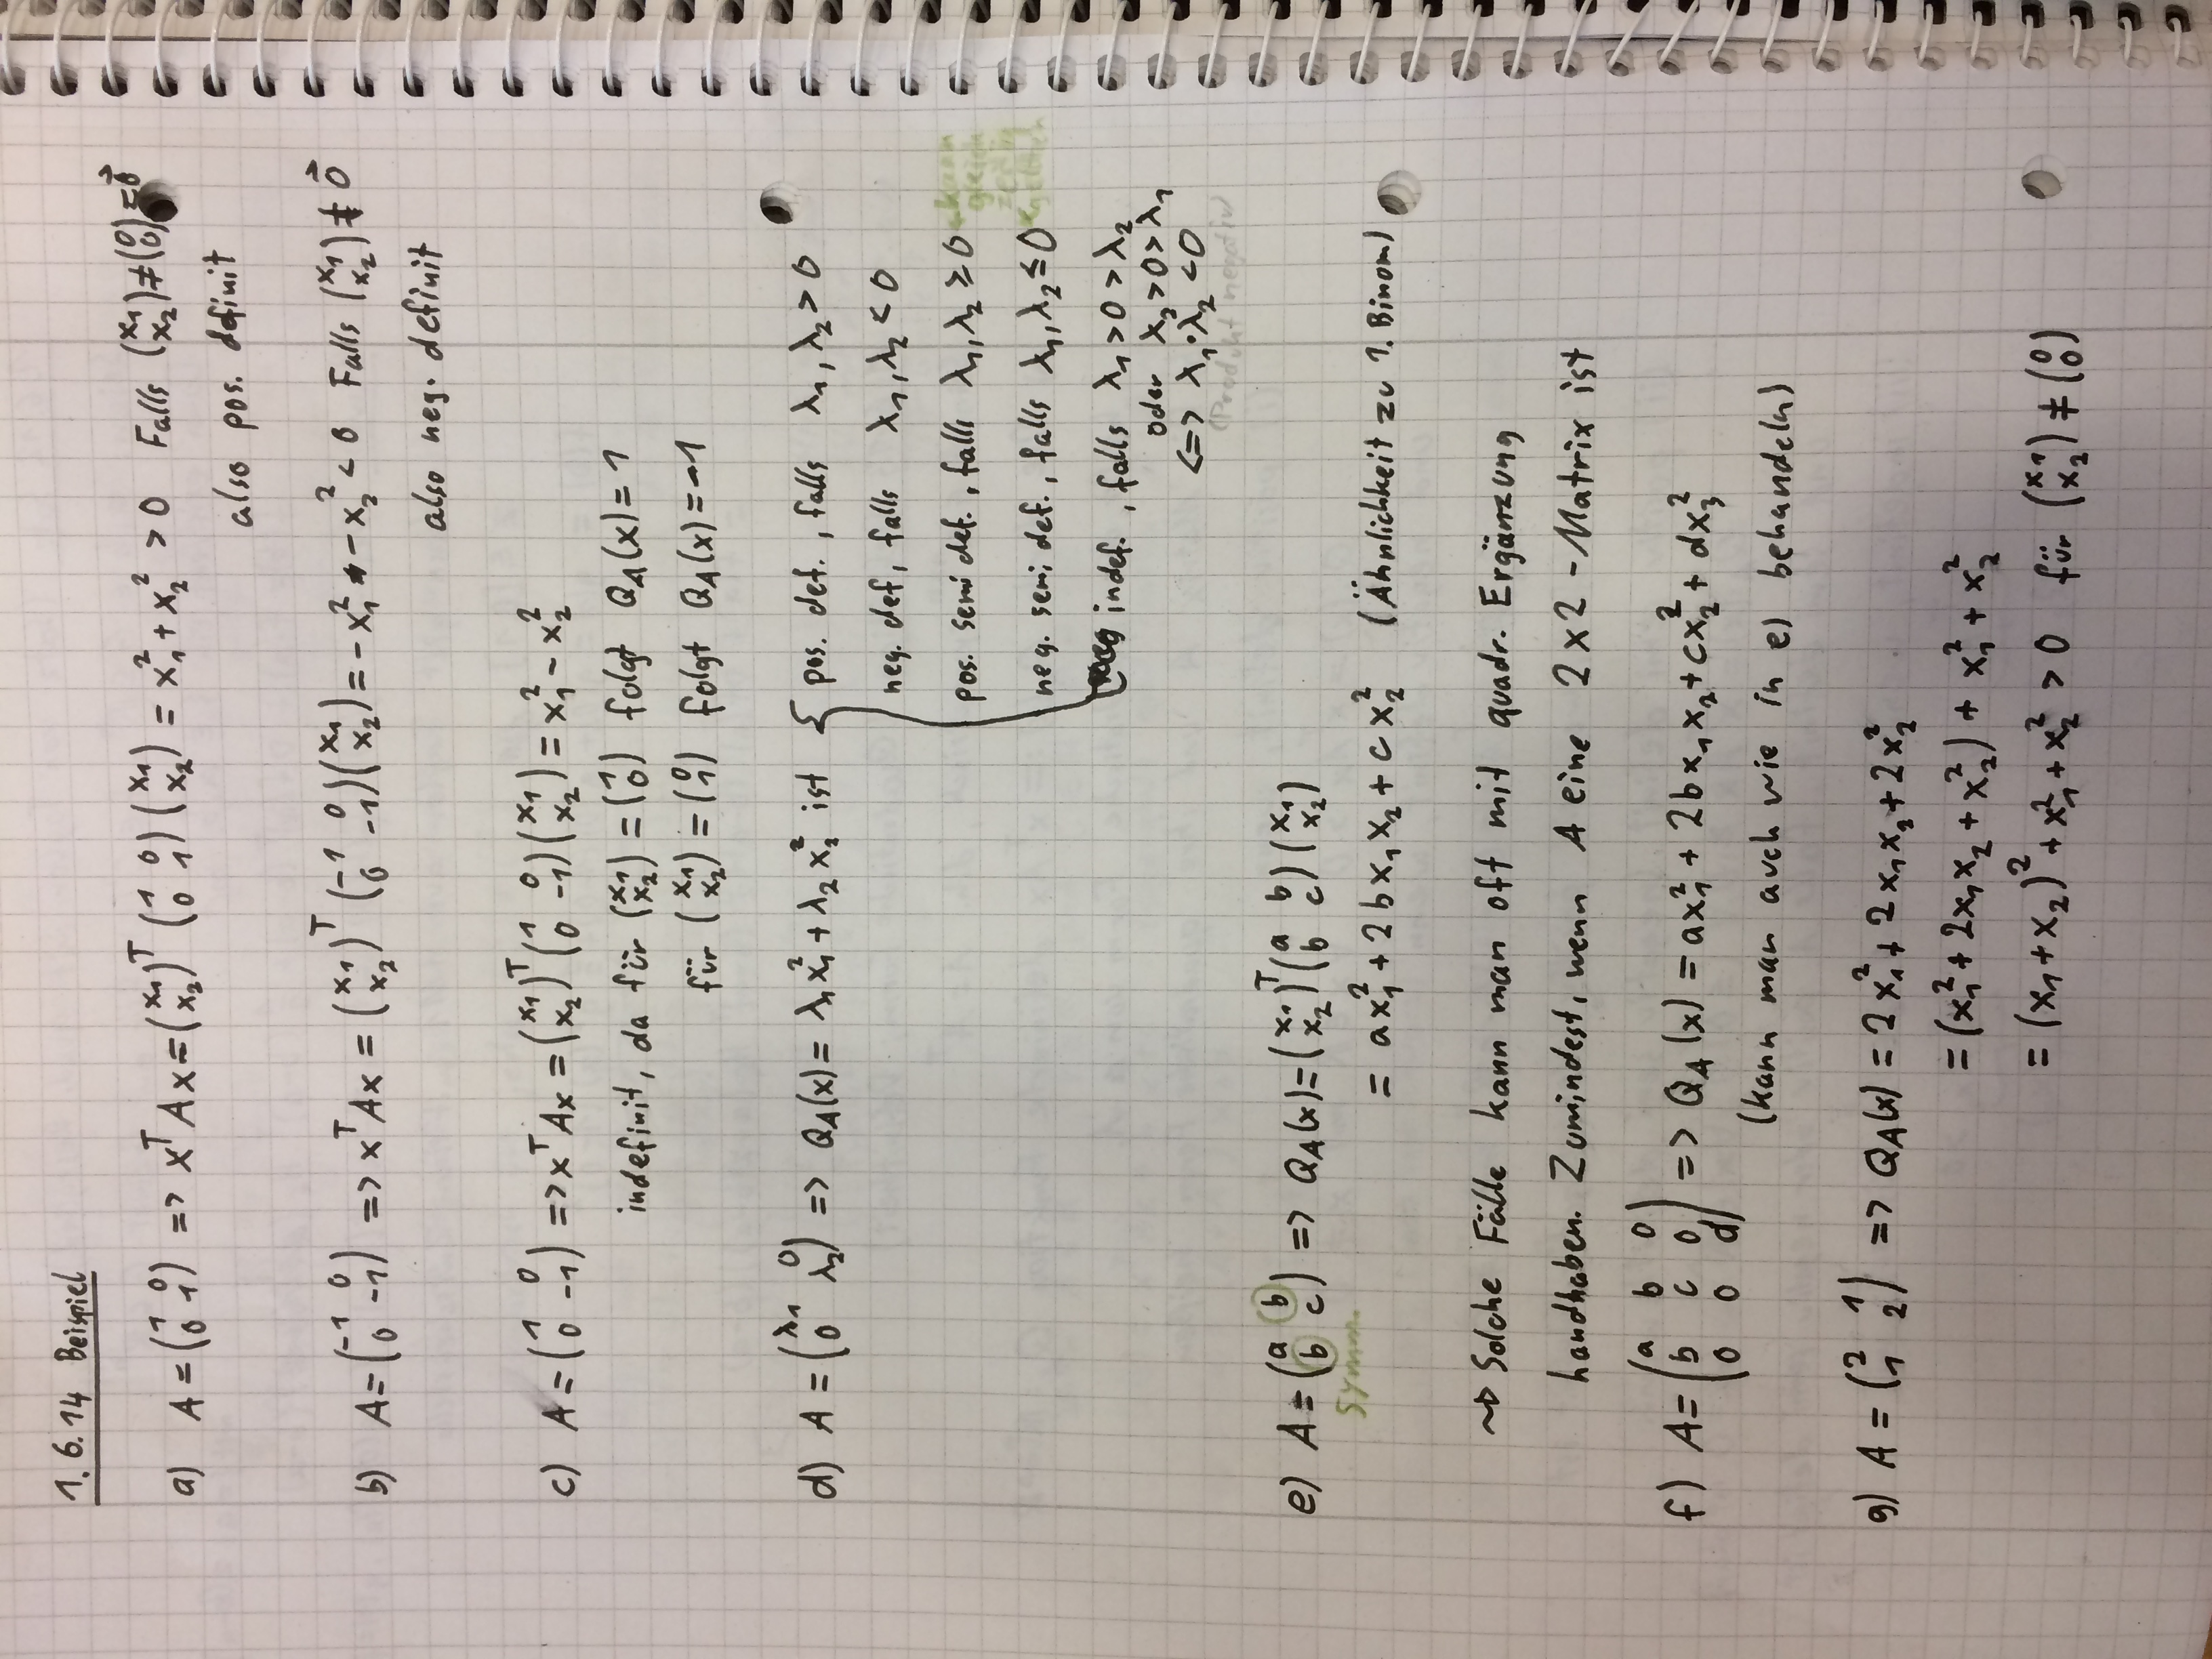 1.6.14 Beispiel
a) A = (1 0; 0 1) => x^T A x = (x₁; x₂)^T (1 0; 0 1) (x₁; x₂) = x₁² + x₂² > 0 Falls (x₁; x₂) ≠ (0; 0) = 0⃗
also pos. definit
b) A = (-1 0; 0 -1) => x^T A x = (x₁; x₂)^T (-1 0; 0 -1) (x₁; x₂) = -x₁² - x₂² < 0 Falls (x₁; x₂) ≠ 0⃗
also neg. definit
c) A = (1 0; 0 -1) => x^T A x = (x₁; x₂)^T (1 0; 0 -1) (x₁; x₂) = x₁² - x₂²
indefinit, da für (x₁; x₂) = (1; 0) folgt Q_A(x) = 1
für (x₁; x₂) = (0; 1) folgt Q_A(x) = -1
d) A = (λ₁ 0; 0 λ₂) => Q_A(x) = λ₁x₁² + λ₂x₂² ist { pos. def., falls λ₁, λ₂ > 0
neg. def, falls λ₁, λ₂ < 0
pos. semi def., falls λ₁, λ₂ ≥ 0 kann
gleich
zeitig
neg. semi def., falls λ₁, λ₂ ≤ 0 gelten
indef., falls λ₁ > 0 > λ₂
oder λ₂ > 0 > λ₁
<=> λ₁·λ₂ < 0
(Produkt negativ)
e) A = (a b; b c) => Q_A(x) = (x₁; x₂)^T (a b; b c) (x₁; x₂)
Symm.
= ax₁² + 2bx₁x₂ + cx₂² (Ähnlichkeit zu 1. Binom)
~> Solche Fälle kann man oft mit quadr. Ergänzung
handhaben. Zumindest, wenn A eine 2x2-Matrix ist
f) A = (a b 0; b c 0; 0 0 d) => Q_A(x) = ax₁² + 2bx₁x₂ + cx₂² + dx₃²
(kann man auch wie in e) behandeln)
g) A = (2 1; 1 2) => Q_A(x) = 2x₁² + 2x₁x₂ + 2x₂²
= (x₁² + 2x₁x₂ + x₂²) + x₁² + x₂²
= (x₁ + x₂)² + x₁² + x₂² > 0 für (x₁; x₂) ≠ (0; 0)